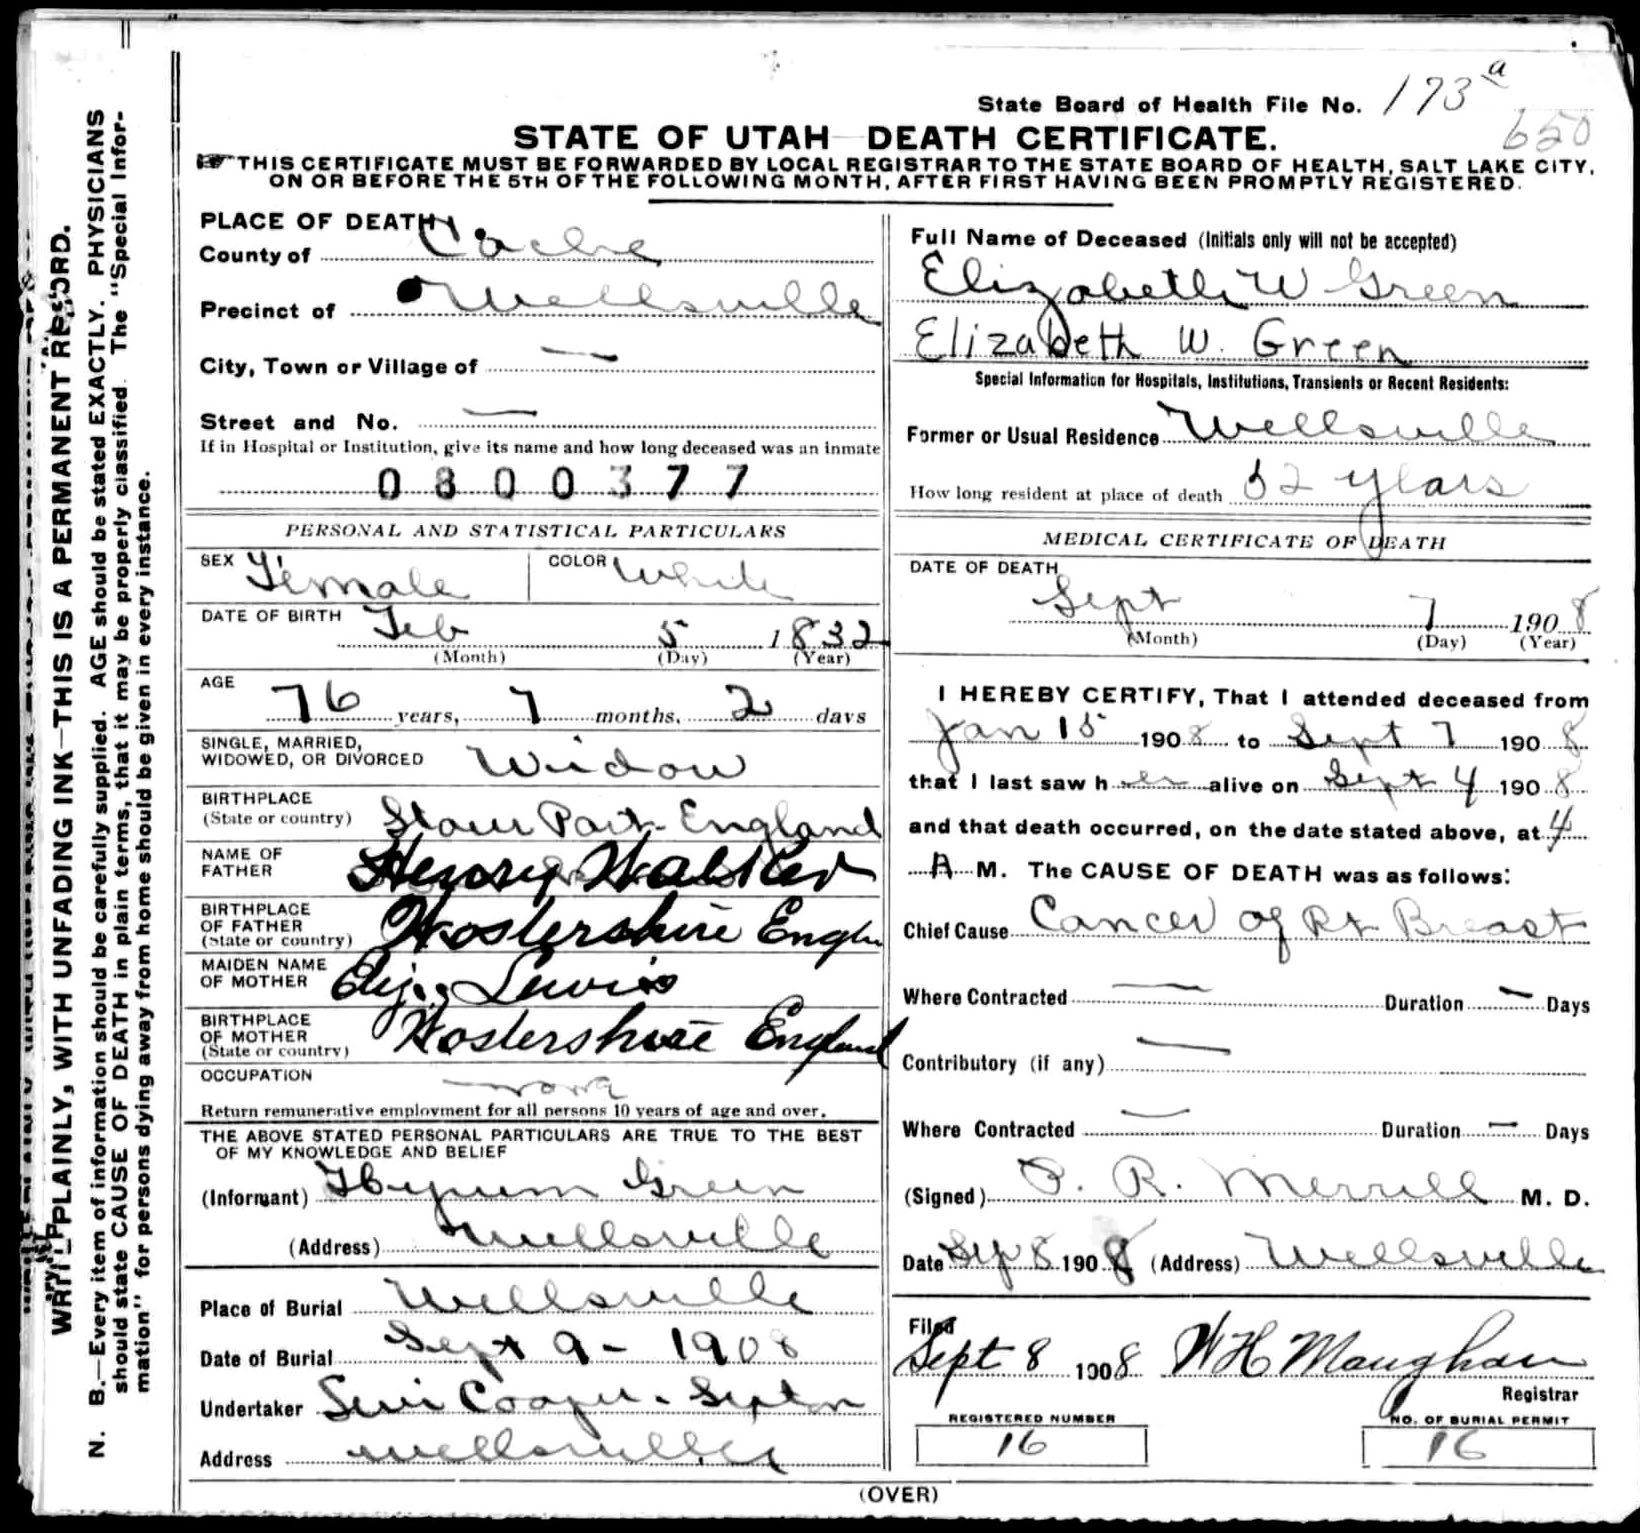 State Board of Health File No. 173 a
650
STATE OF UTAH DEATH CERTIFICATE.
THIS CERTIFICATE MUST BE FORWARDED BY LOCAL REGISTRAR TO THE STATE BOARD OF HEALTH, SALT LAKE CITY,
ON OR BEFORE THE 5TH OF THE FOLLOWING MONTH, AFTER FIRST HAVING BEEN PROMPTLY REGISTERED.
WRITE PLAINLY, WITH UNFADING INK—THIS IS A PERMANENT RECORD.
N. B.—Every item of information should be carefully supplied. AGE should be stated EXACTLY. PHYSICIANS
should state CAUSE OF DEATH in plain terms, that it may be properly classified. The "Special Infor-
mation" for persons dying away from home should be given in every instance.
PLACE OF DEATH
County of Cache
Precinct of Wellsville
City, Town or Village of —
Street and No. —
If in Hospital or Institution, give its name and how long deceased was an inmate
0800377
PERSONAL AND STATISTICAL PARTICULARS
SEX Female COLOR White
DATE OF BIRTH Feb 5 1832
(Month) (Day) (Year)
AGE 76 years, 7 months, 2 days
SINGLE, MARRIED,
WIDOWED, OR DIVORCED Widow
BIRTHPLACE
(State or country) Stour Port England
NAME OF
FATHER Henry Walker
BIRTHPLACE
OF FATHER
(State or country) Wostershire Engln
MAIDEN NAME
OF MOTHER Eliza Lewis
BIRTHPLACE
OF MOTHER
(State or country) Wostershire England
OCCUPATION
Return remunerative employment for all persons 10 years of age and over.
THE ABOVE STATED PERSONAL PARTICULARS ARE TRUE TO THE BEST
OF MY KNOWLEDGE AND BELIEF
(Informant) Hyrum Green
(Address) Wellsville
Place of Burial Wellsville
Date of Burial Sept 9 - 1908
Undertaker Levi Cooper. Sexton
Address Wellsville
Full Name of Deceased (Initials only will not be accepted)
Elizabeth W Green
Elizabeth W. Green
Special Information for Hospitals, Institutions, Transients or Recent Residents:
Former or Usual Residence Wellsville
How long resident at place of death 52 years
MEDICAL CERTIFICATE OF DEATH
DATE OF DEATH
Sept 7 1908
(Month) (Day) (Year)
I HEREBY CERTIFY, That I attended deceased from
Jan 15 1908 to Sept 7 1908
that I last saw her alive on Sept 4 1908
and that death occurred, on the date stated above, at 4
A M. The CAUSE OF DEATH was as follows:
Chief Cause Cancer of Rt Breast
Where Contracted — Duration — Days
Contributory (if any) —
Where Contracted — Duration — Days
(Signed) P. R. Merrill M. D.
Date Sep 8 1908 (Address) Wellsville
Filed
Sept 8 1908 W H Maughan
Registrar
REGISTERED NUMBER NO. OF BURIAL PERMIT
16 16
(OVER)